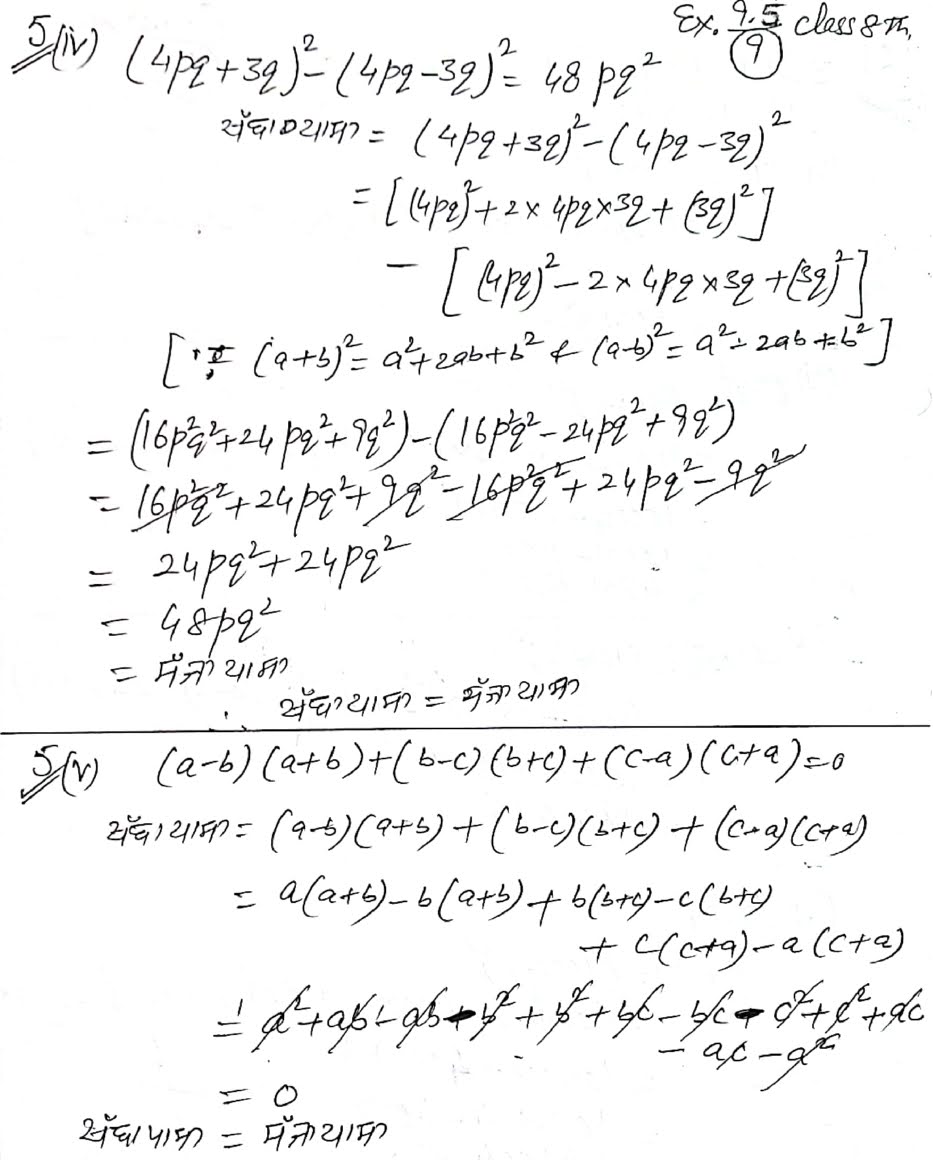 5 (iv) Ex. 9.5 class 8th,
9
(4pq+3q)²-(4pq-3q)² = 48pq²
ਖੱਬਾ ਪਾਸਾ = (4pq+3q)²-(4pq-3q)²
= [(4pq)²+2×4pq×3q+(3q)²]
- [(4pq)²-2×4pq×3q+(3q)²]
[∵ (a+b)²=a²+2ab+b² & (a-b)²=a²-2ab+b²]
= (16p²q²+24pq²+9q²)-(16p²q²-24pq²+9q²)
= 16p²q²+24pq²+9q²-16p²q²+24pq²-9q²
= 24pq²+24pq²
= 48pq²
= ਸੱਜਾ ਪਾਸਾ
ਖੱਬਾ ਪਾਸਾ = ਸੱਜਾ ਪਾਸਾ
5 (v) (a-b)(a+b)+(b-c)(b+c)+(c-a)(c+a)=0
ਖੱਬਾ ਪਾਸਾ = (a-b)(a+b)+(b-c)(b+c)+(c-a)(c+a)
= a(a+b)-b(a+b)+b(b+c)-c(b+c)
+ c(c+a)-a(c+a)
= a²+ab-ab-b²+b²+bc-bc-c²+c²+ac
- ac-a²
= 0
ਖੱਬਾ ਪਾਸਾ = ਸੱਜਾ ਪਾਸਾ